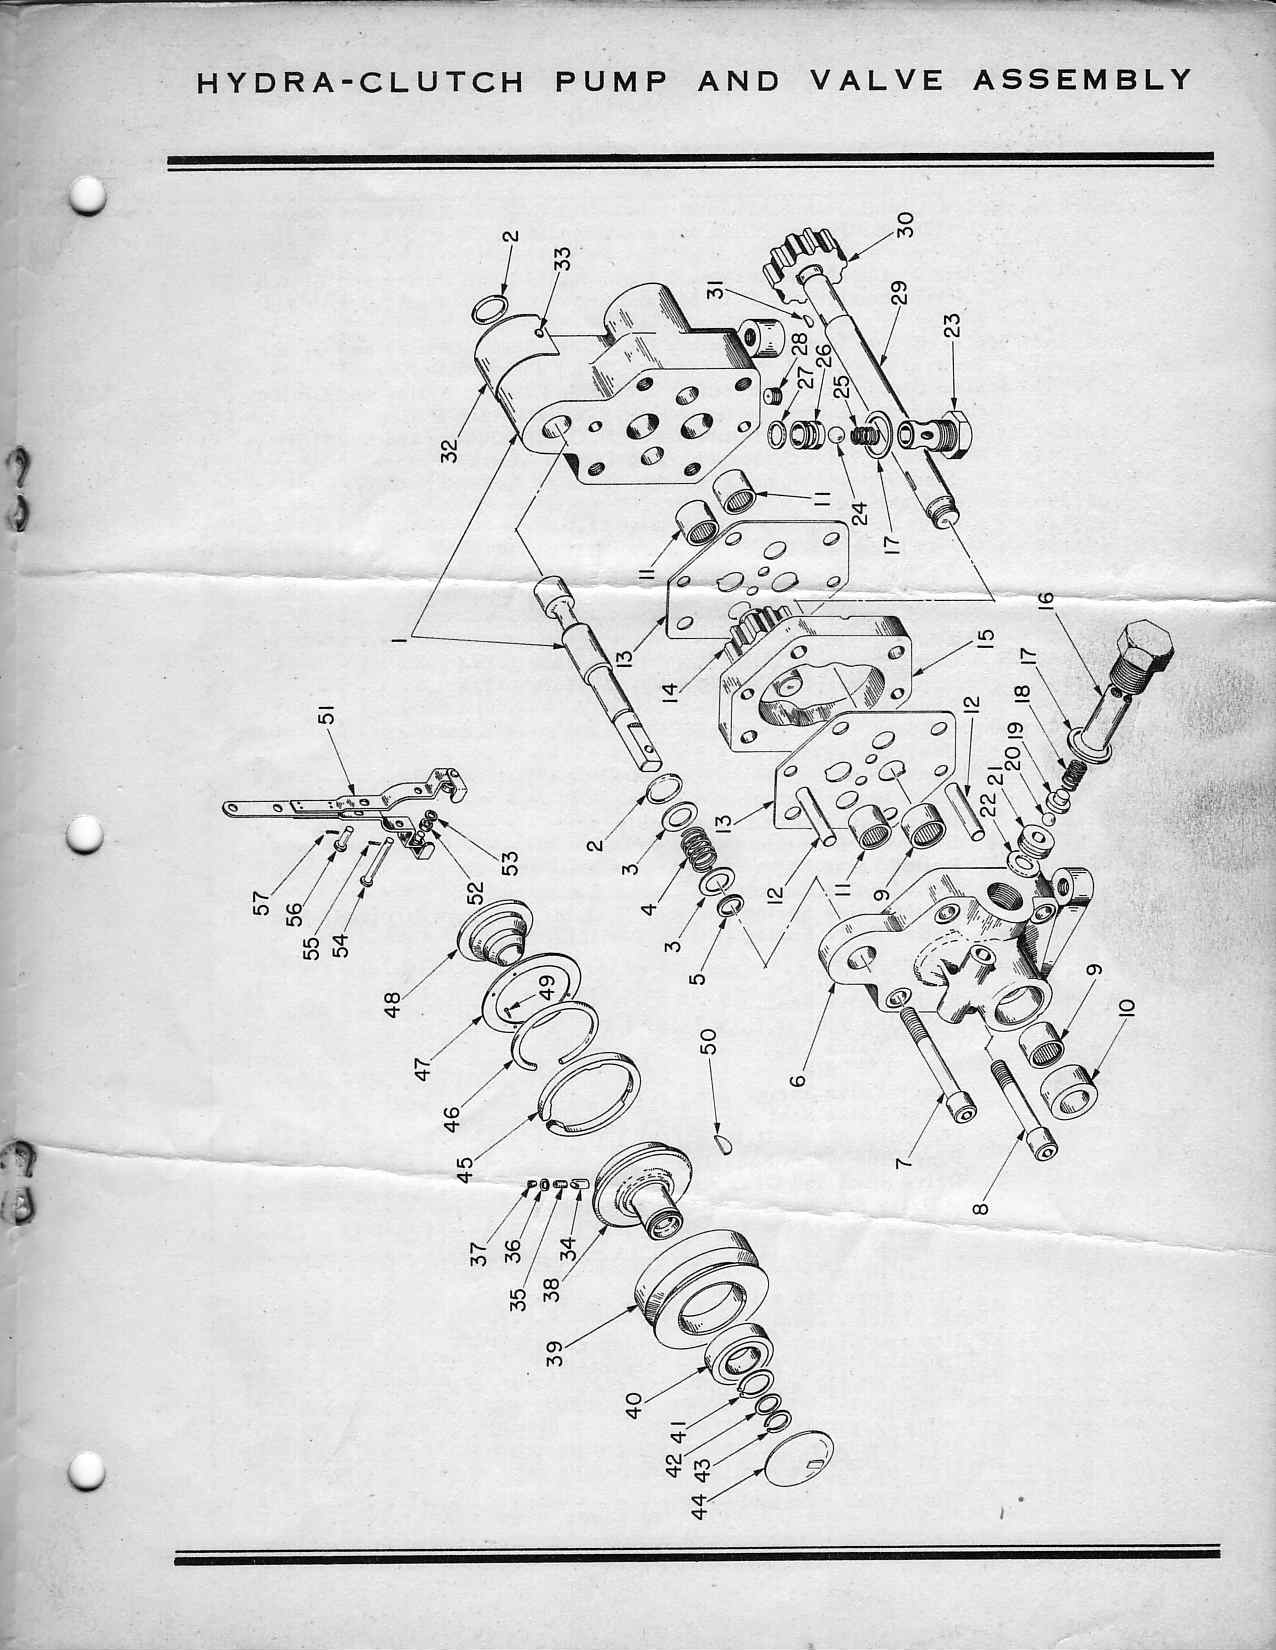 HYDRA-CLUTCH PUMP AND VALVE ASSEMBLY
2
33
30
31
29
32
23
28
27
26
25
11
24
17
11
1
13
16
15
14
17
12
18
51
19
20
21
22
2
13
3
12
11
9
4
53
52
57
56
55
54
3
5
48
49
9
10
47
50
6
46
7
45
8
37
36
34
35
38
39
40
41
42
43
44